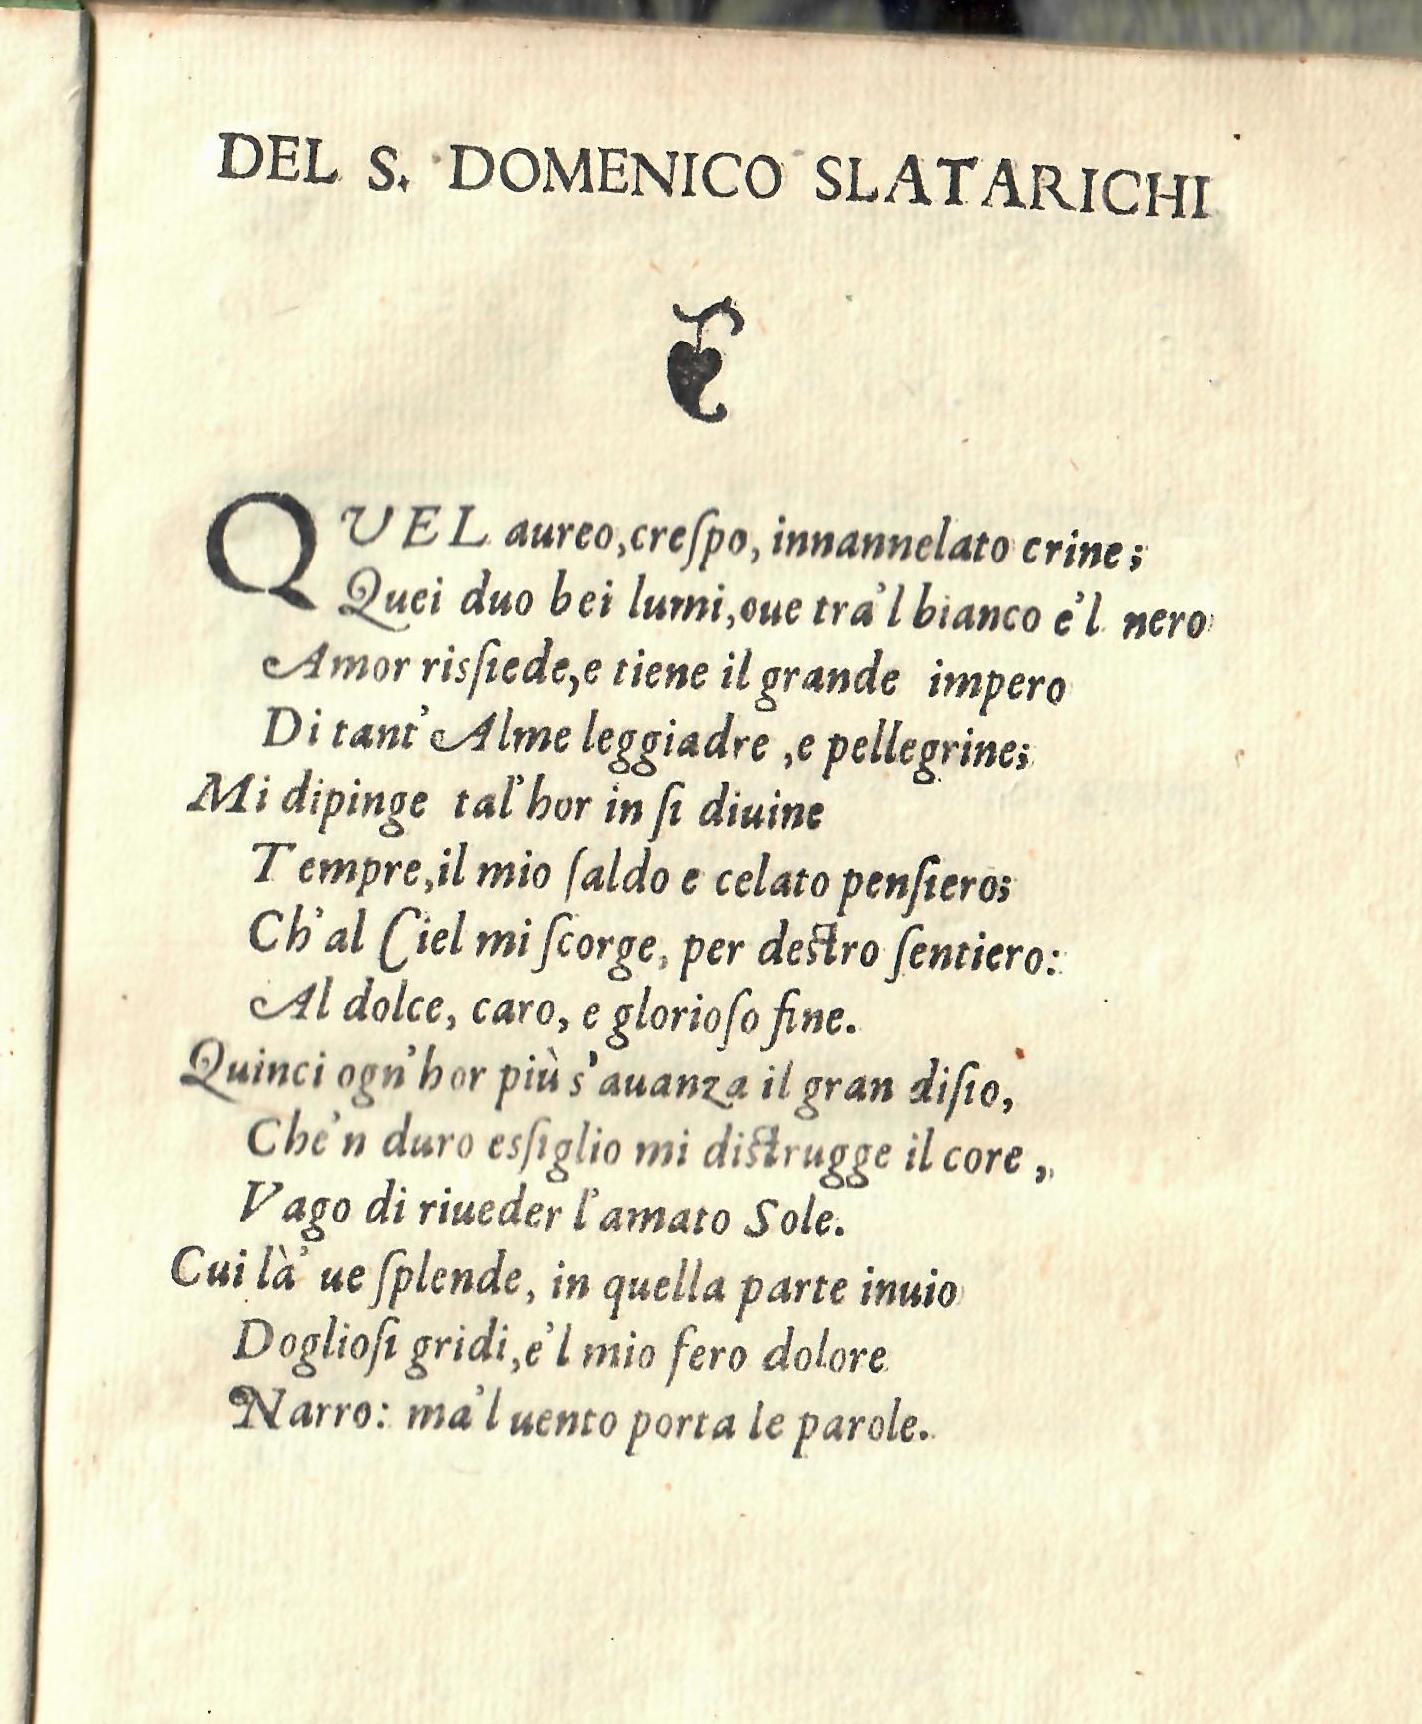 DEL S. DOMENICO SLATARICHI
QVEL aureo, creſpo, innannelato crine;
Quei duo bei lumi, oue tra'l bianco e'l nero
Amor risſiede, e tiene il grande impero
Di tant' Alme leggiadre, e pellegrine;
Mi dipinge tal'hor in ſi diuine
Tempre, il mio ſaldo e celato penſiero;
Ch'al Ciel mi ſcorge, per deſtro ſentiero:
Al dolce, caro, e glorioſo fine.
Quinci ogn'hor più s'auanza il gran diſio,
Che'n duro esſiglio mi diſtrugge il core,
Vago di riueder l'amato Sole.
Cui là' ue ſplende, in quella parte inuio
Doglioſi gridi, e'l mio fero dolore
Narro: ma'l uento porta le parole.